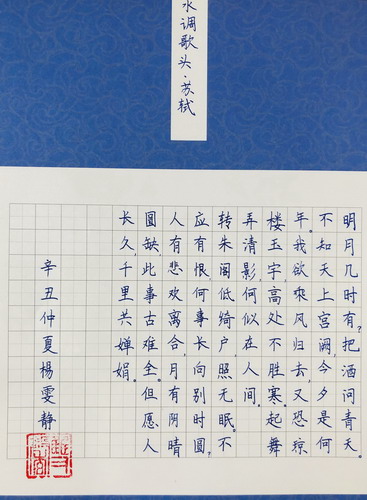 水调歌头·苏轼
明月几时有?把酒问青天。
不知天上宫阙,今夕是何
年。我欲乘风归去,又恐琼
楼玉宇,高处不胜寒。起舞
弄清影,何似在人间。
转朱阁,低绮户,照无眠。不
应有恨,何事长向别时圆。
人有悲欢离合,月有阴晴
圆缺,此事古难全。但愿人
长久,千里共婵娟。
辛丑仲夏楊雯静